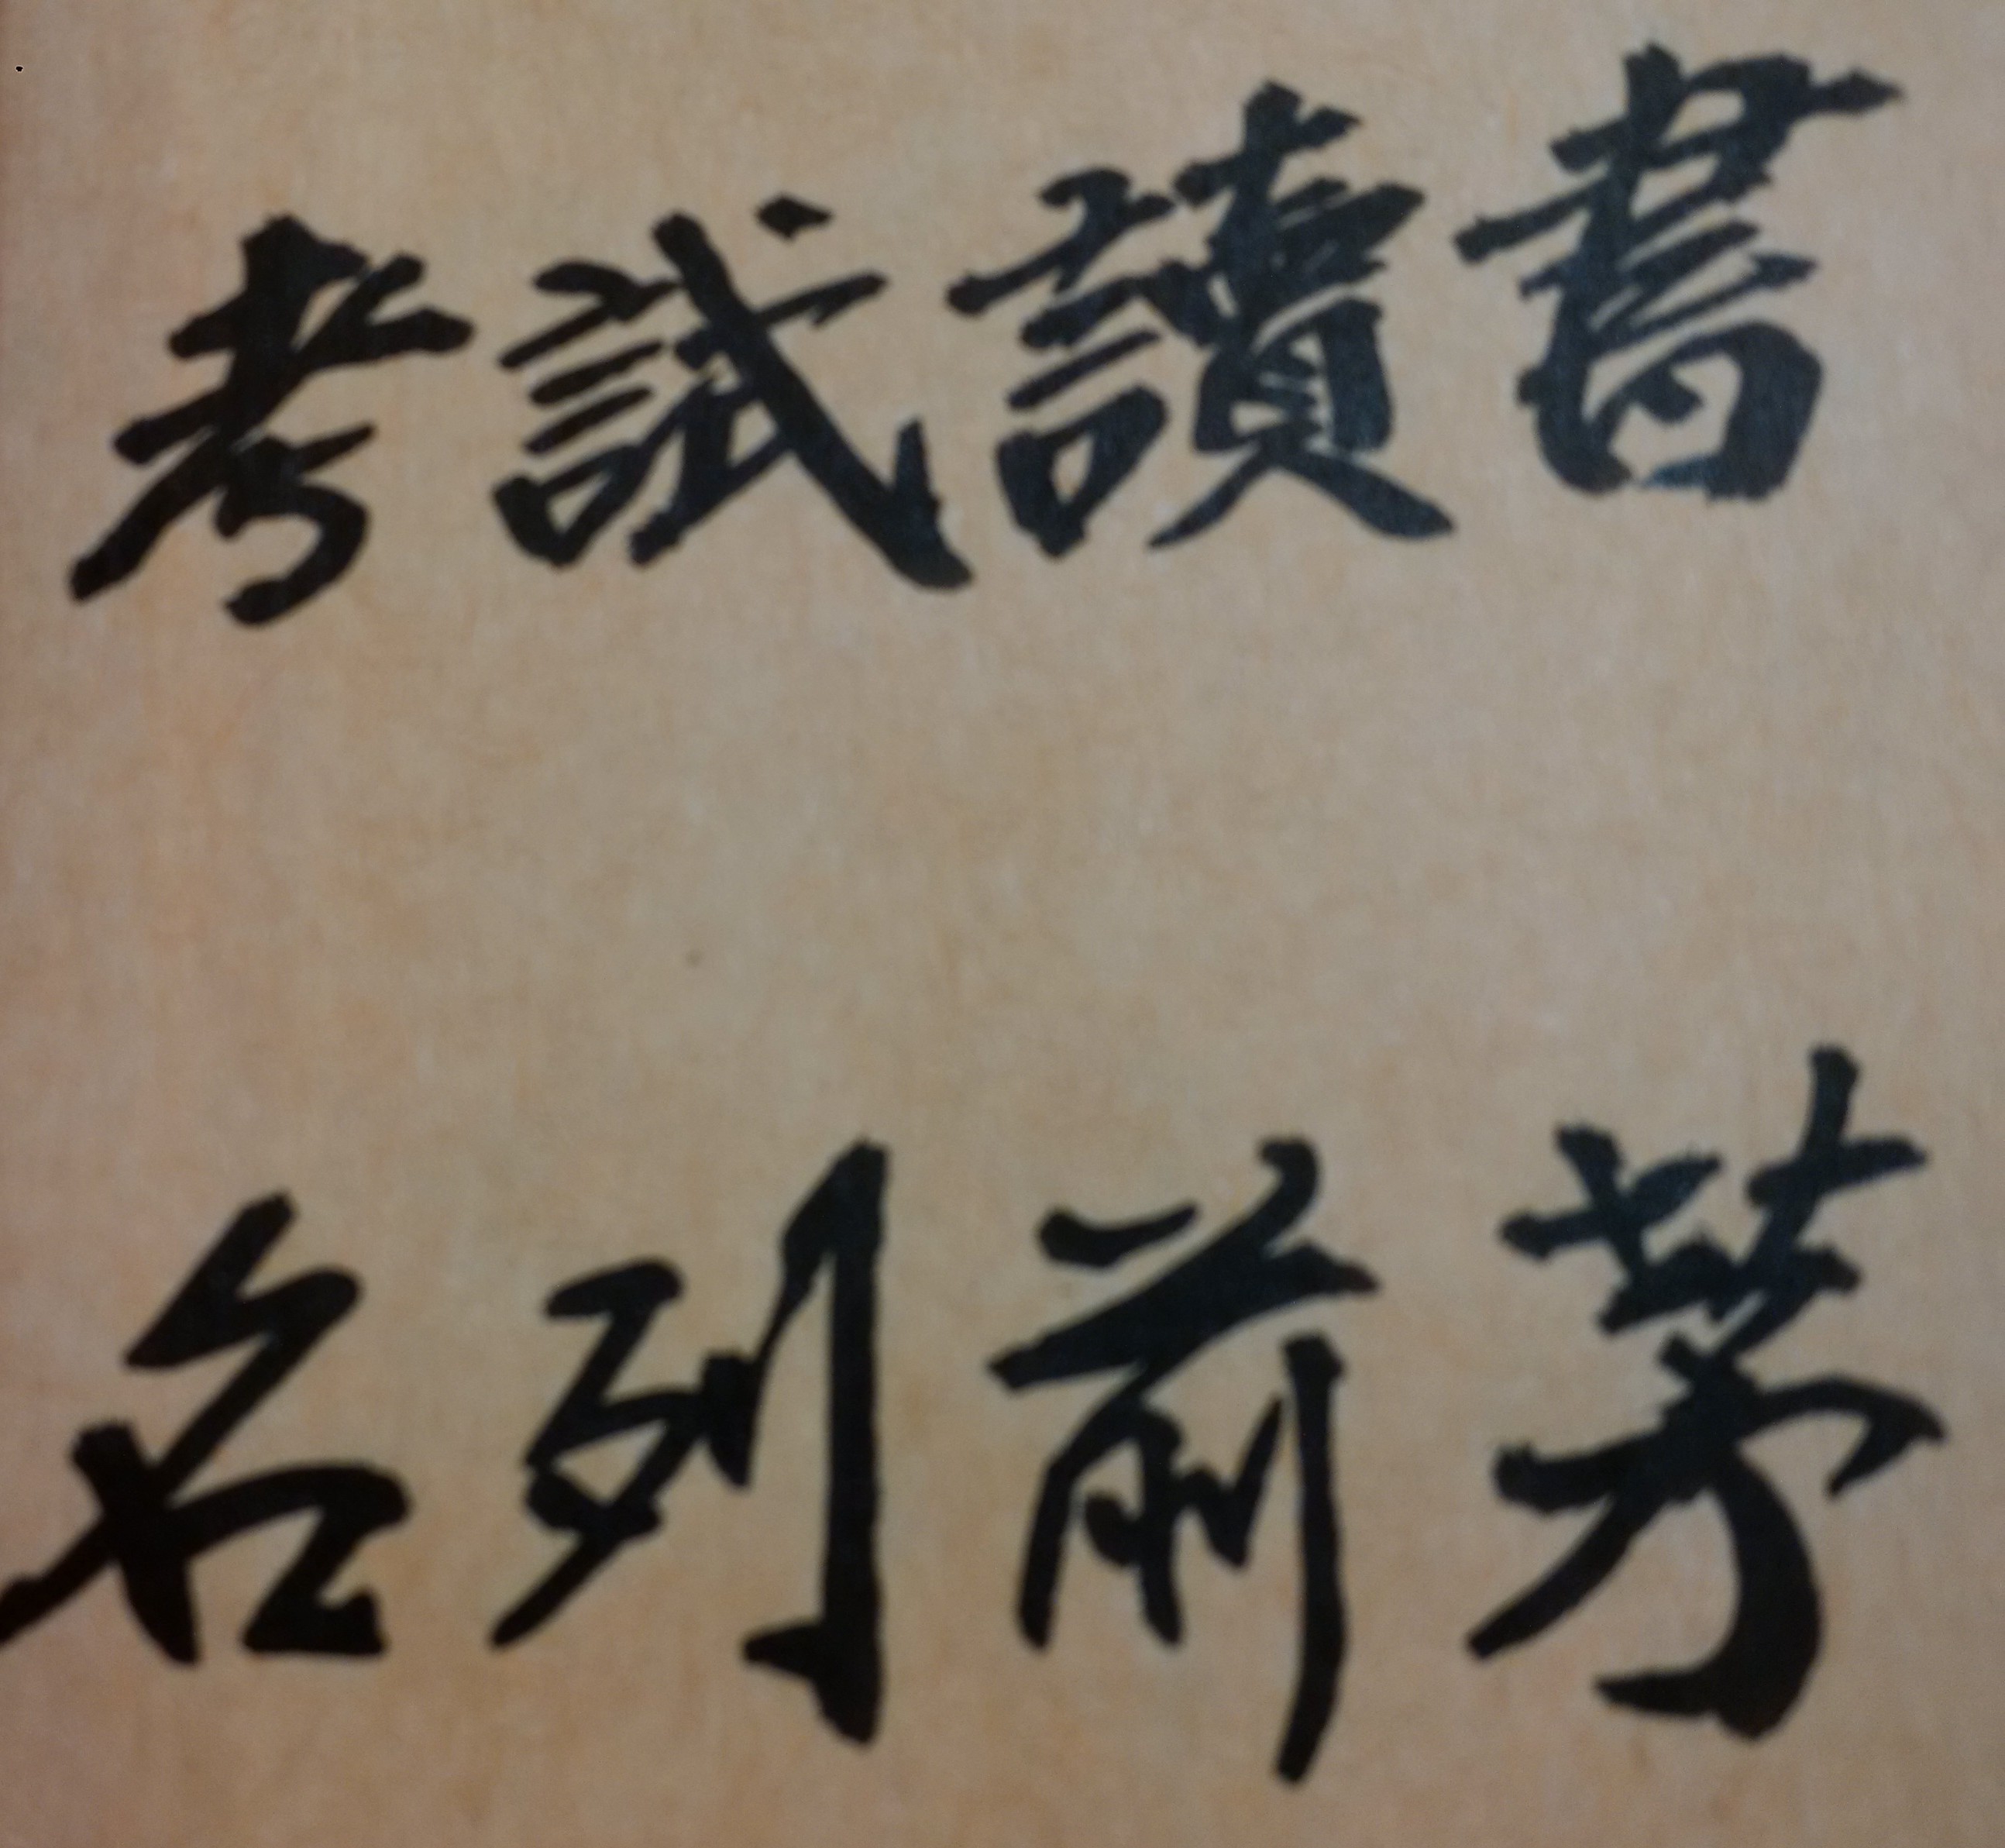 考試讀書
名列前茅